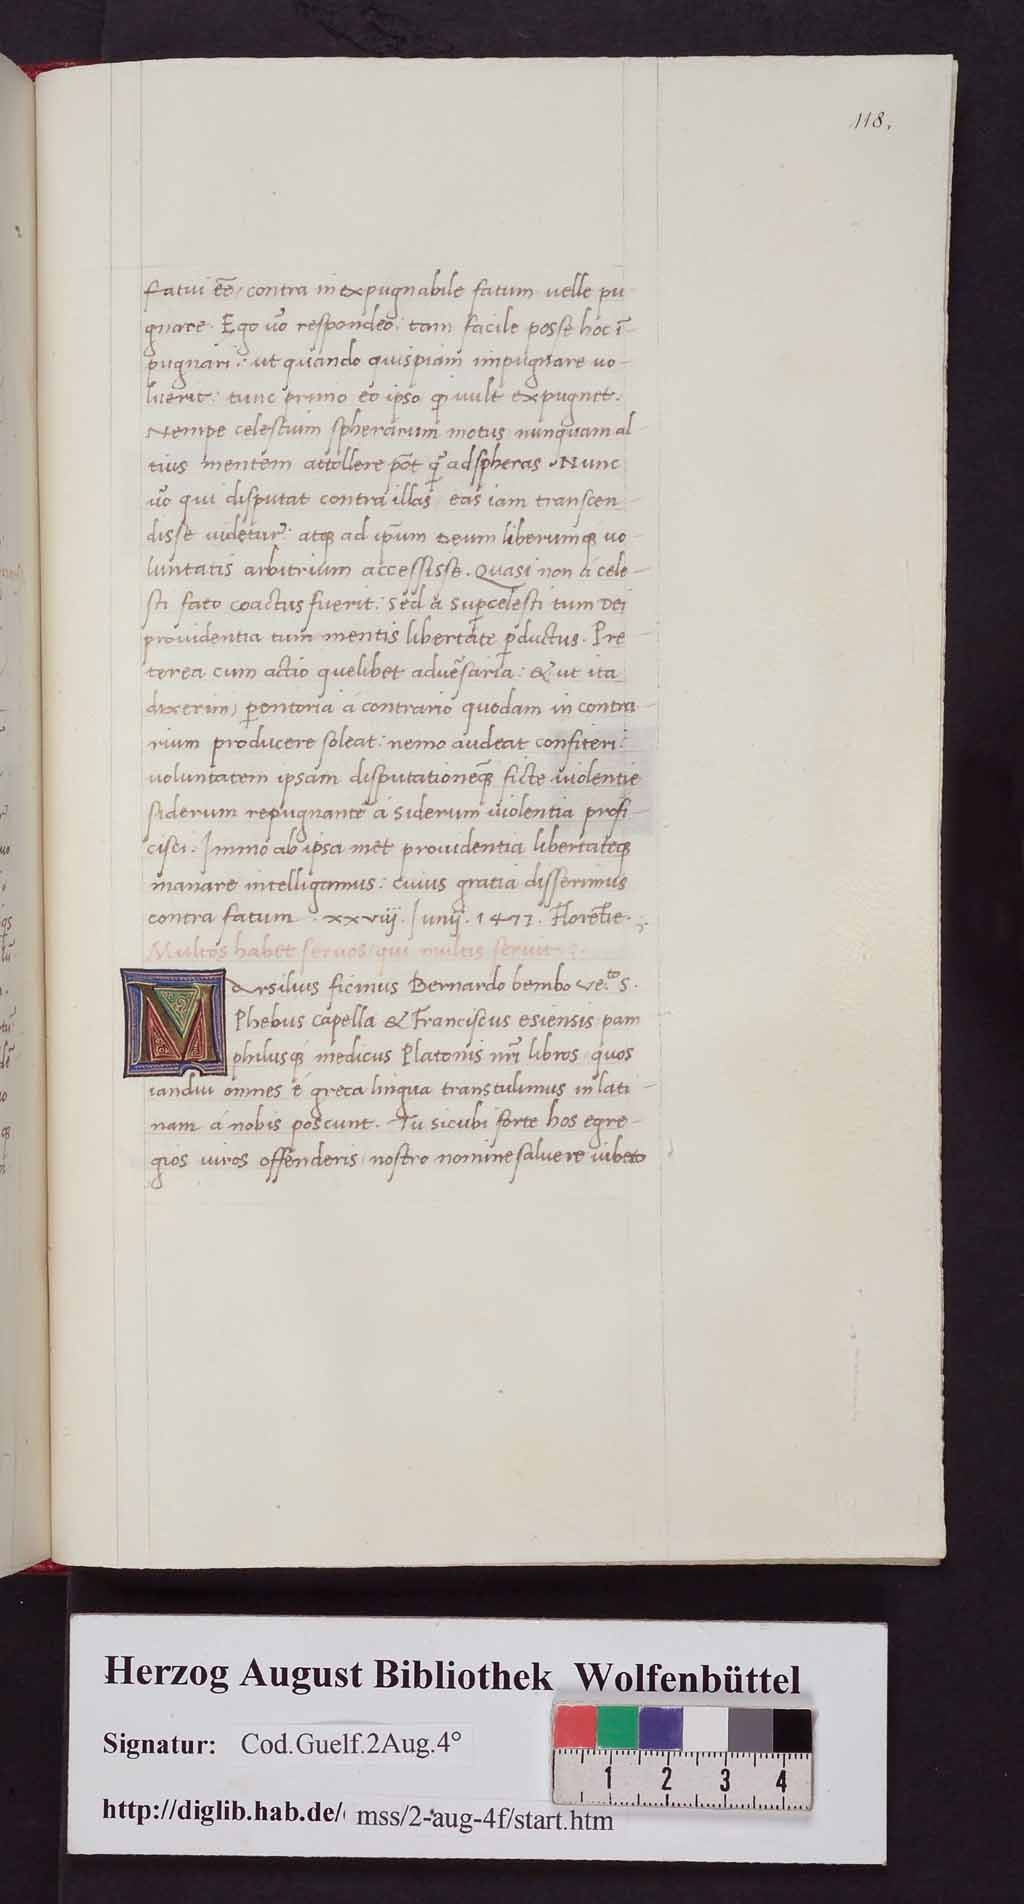 118.
fatui eē, contra inexpugnabile fatum velle pu
gnare. Ego ṽo respondeo: tam facile posse hoc ī-
pugnari: ut quando quispiam impugnare uo-
luerit: tunc primo eo ipso ꝙ vult expugnet.
Nempe celestium spherarum motus nunquam al-
tius mentem attollere pōt ꝙ̃ ad spheras. Nunc
ṽo qui disputat contra illas eas iam transcen-
disse uidetur: atqꝫ ad ip̄um deum liberumqꝫ uo-
luntatis arbitrium accessisse. Quasi non a cele-
sti fato coactus fuerit: sed a suꝑcelesti tum dei
prouidentia tum mentis libertate ꝑductus. Pre-
terea cum actio quelibet adue͂saria: & ut ita
dixerim, ꝑentoria á contrario quodam in contra-
rium producere soleat: nemo audeat confiteri:
voluntatem ipsam disputationēqꝫ ficte uiolentie
siderum repugnantē á siderum uiolentia profi-
cisci: Immo ab ipsa met prouidentia libertateqꝫ
manare intelligamus: cuius gratia disserimus
contra fatum. xxviij. Iunij. 1477. Florētie.
Multos habet seruos, qui multis seruit.
Marsilius ficinus Bernardo bembo ve.to s.
Phebus capella & Franciscus esiensis pam
philusqꝫ medicus Platonis nr̄i libros quos
iandiu omnes é greca lingua transtulimus in lati-
nam á nobis poscunt. Tu sicubi forte hos egre-
gios uiros offenderis nostro nomine saluere iubeto
Herzog August Bibliothek Wolfenbüttel
Signatur: Cod.Guelf.2Aug.4°
1 2 3 4
http://diglib.hab.de/ mss/2-aug-4f/start.htm